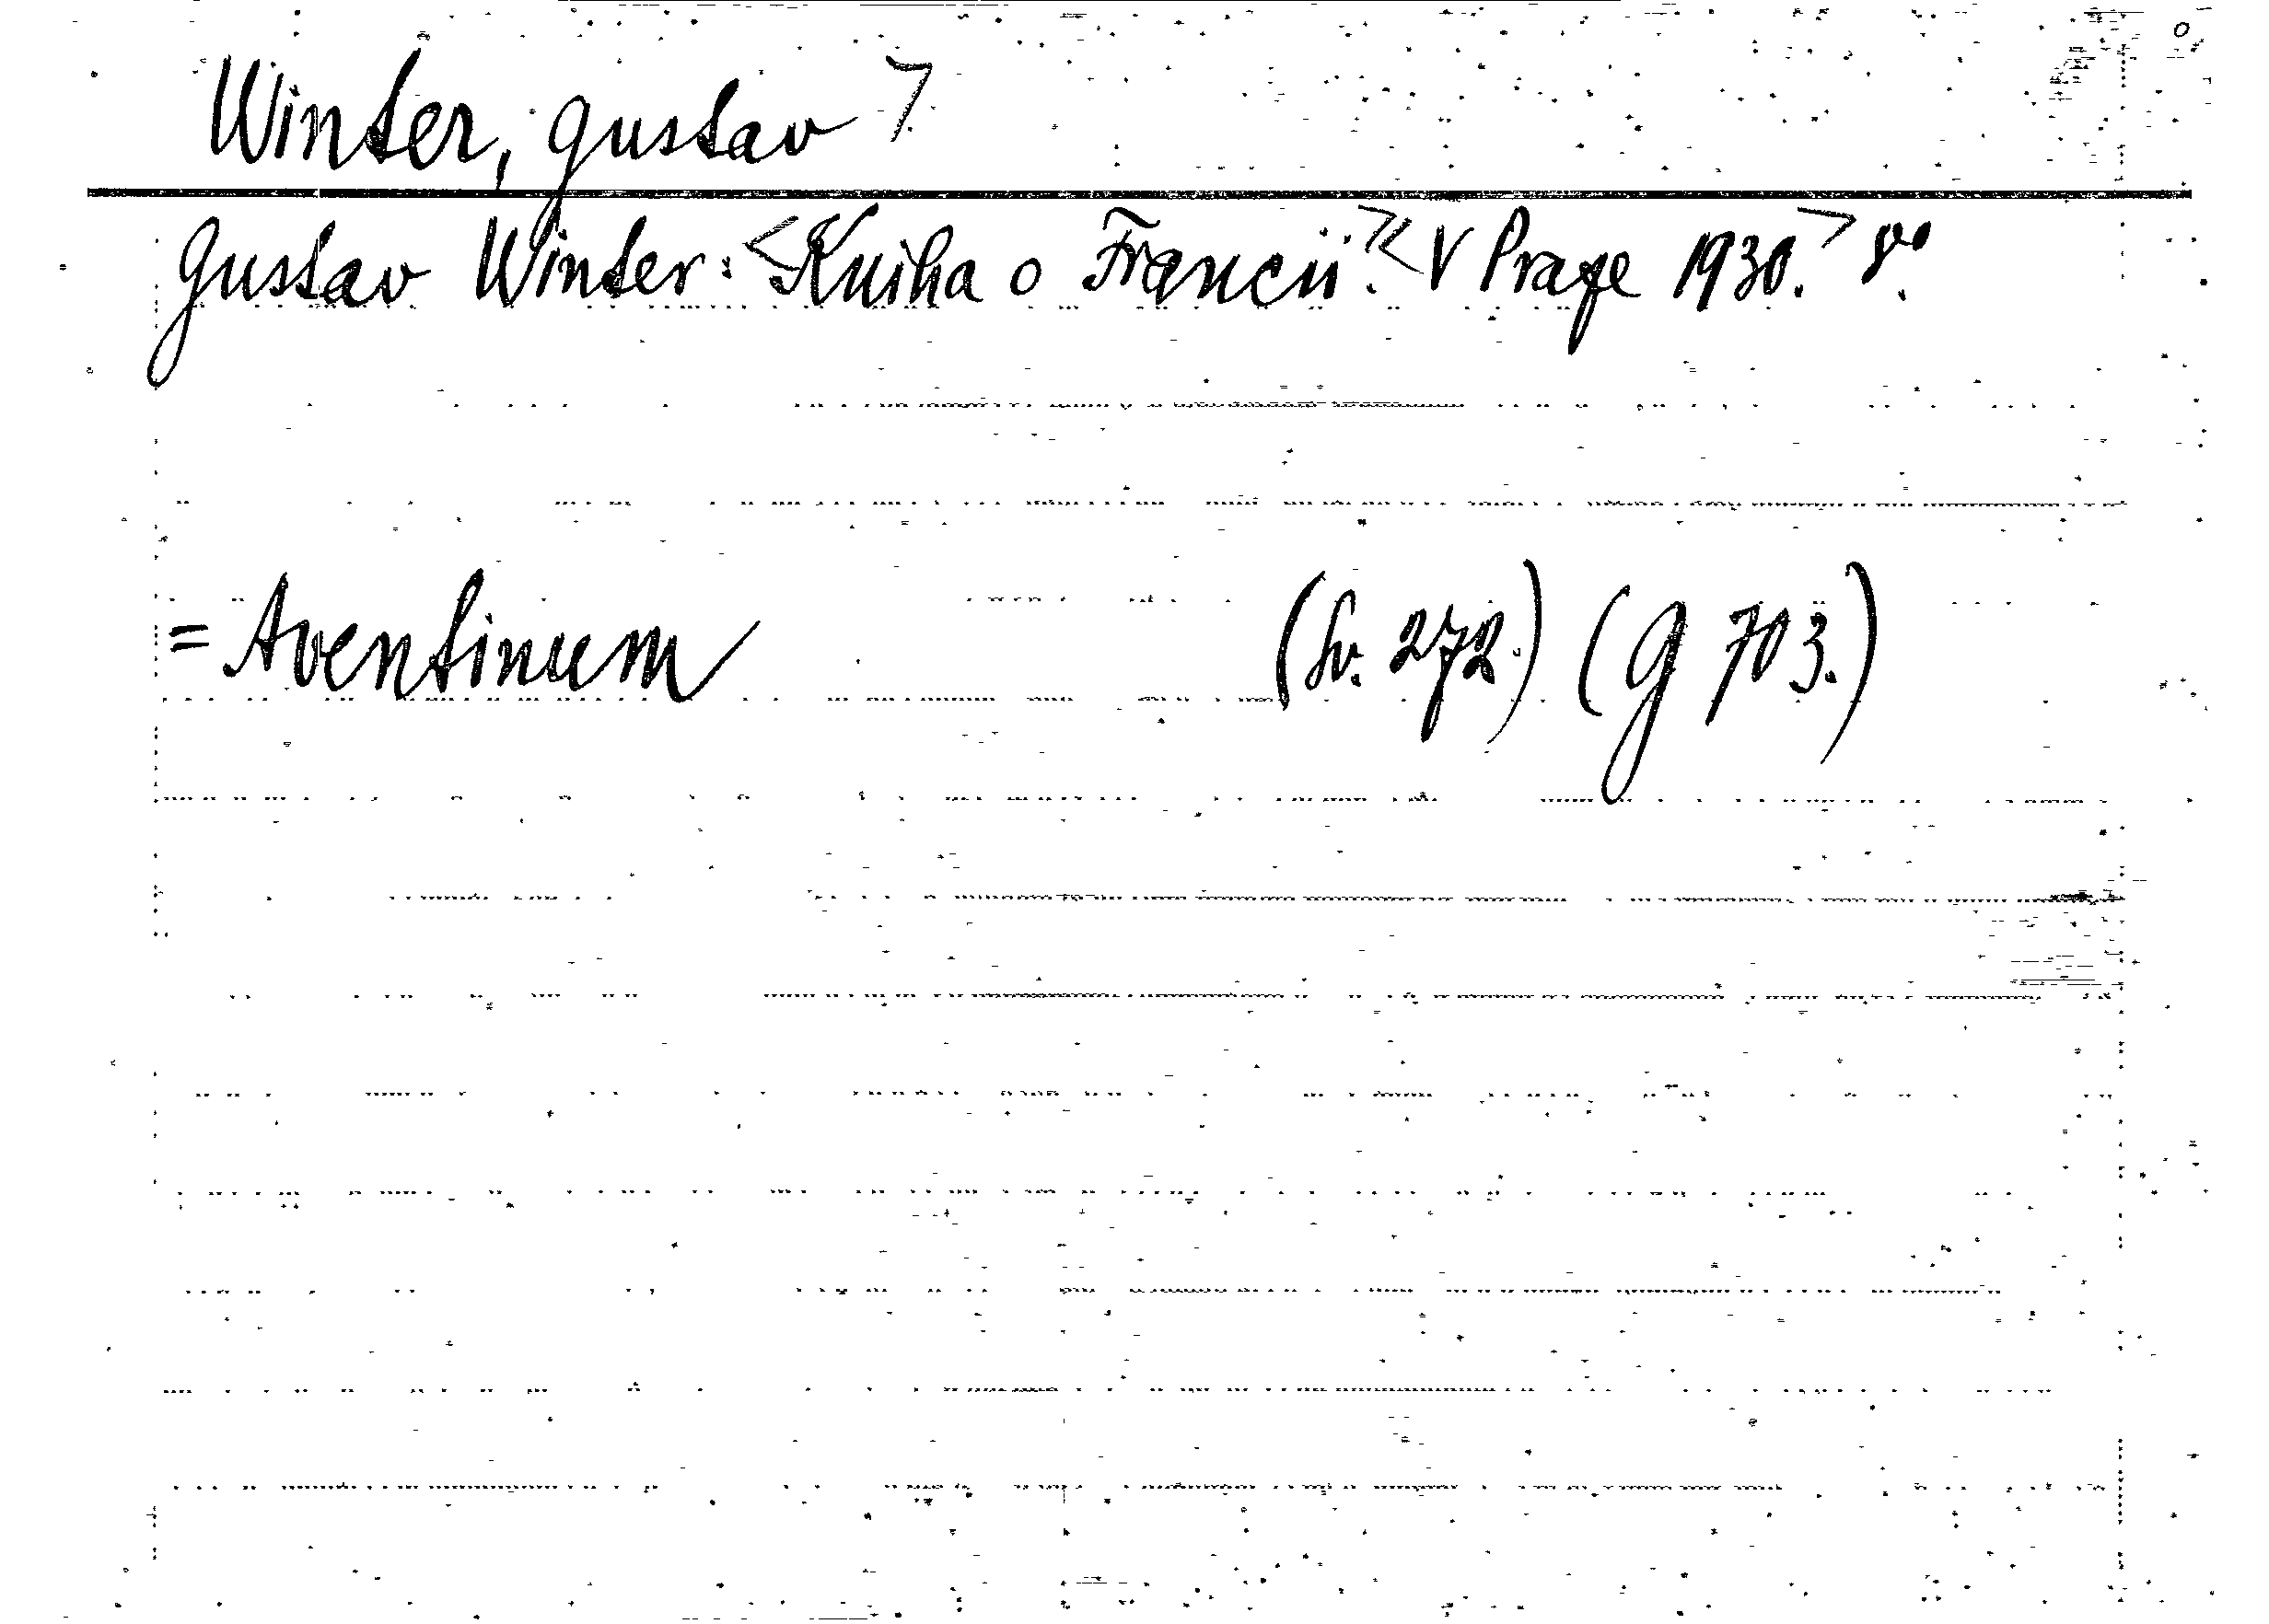 Winter, Gustav >
Gustav Winter: <Kniha o Francii.> <V Praze 1930.> 8°.
= Aventinum (Sv. 272.) (G 703.)